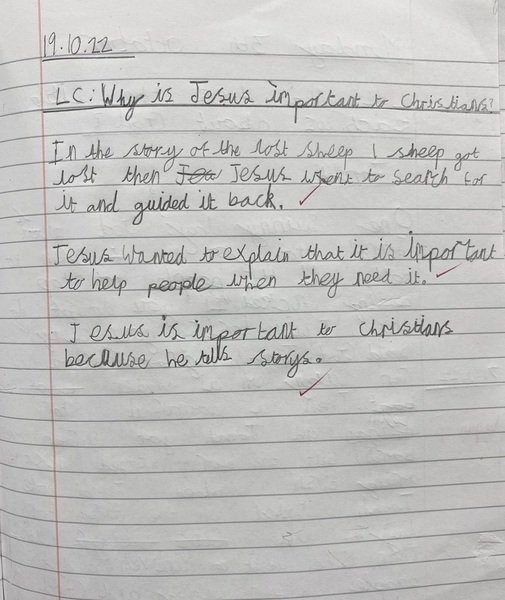 19.10.22
LC: Why is Jesus important to Christians?
In the story of the lost sheep 1 sheep got
lost then Jesus went to search for
it and guided it back.
Jesus wanted to explain that it is important
to help people when they need it.
Jesus is important to Christians
because he tells storys.